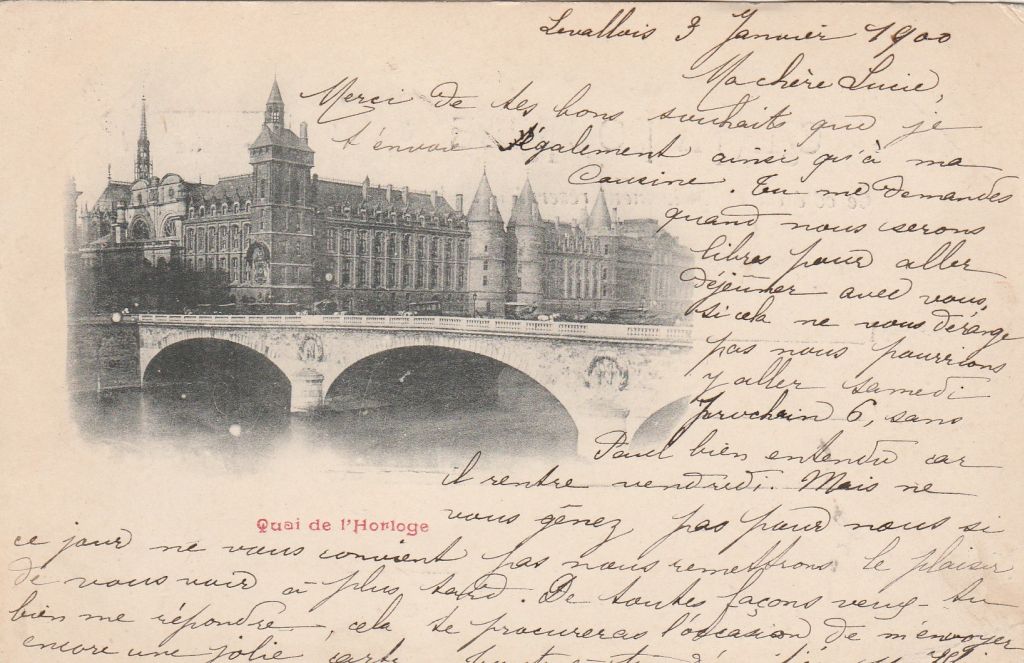 Levallois 3 Janvier 1900
Ma chère Lucie,
Merci de tes bons souhaits que je
t'envoie également ainsi qu'à ma
Cousine. Tu me demandes
quand nous serons
libres pour aller
déjeuner avec vous,
si cela ne vous dérange
pas nous pourrions
y aller samedi
prochain 6, sans
Paul bien entendu car
il rentre vendredi. Mais ne
vous gênez pas pour nous si
Quai de l'Horloge
ce jour ne vous convient pas nous remettrons le plaisir
de vous voir à plus tard. De toutes façons veux-tu
bien me répondre, cela te procurera l'occasion de m'envoyer
encore une jolie carte